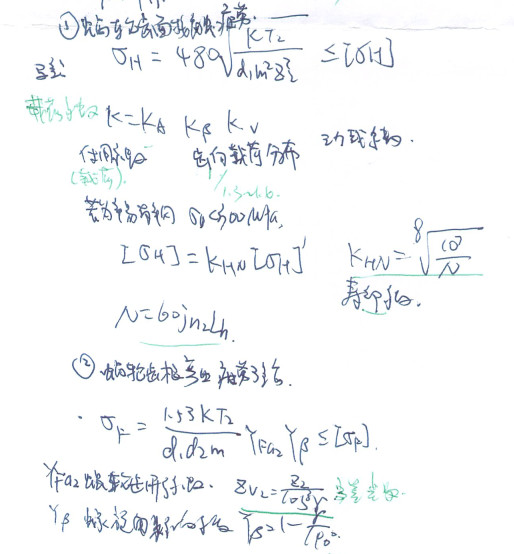 ① 蜗轮齿面接触疲劳
σH = 480 √(KT₂ / d₁m²z₂²) ≤ [σH]
载荷系数 K = KA Kβ Kv
使用系数 齿向载荷分布 动载系数.
(载荷). 1.3~1.6.
若为锡青铜 σB<300MPa,
[σH] = KHN [σH]' KHN = ⁸√(10⁷ / N)
寿命系数.
N = 60jn₂Lh.
② 蜗轮齿根弯曲疲劳
σF = 1.53KT₂ / d₁d₂m YFa₂ Yβ ≤ [σF].
YFa₂ 蜗轮齿形系数. Zv₂ = Z₂ / cos³γ 当量齿数.
Yβ 螺旋角影响系数 Yβ = 1 −